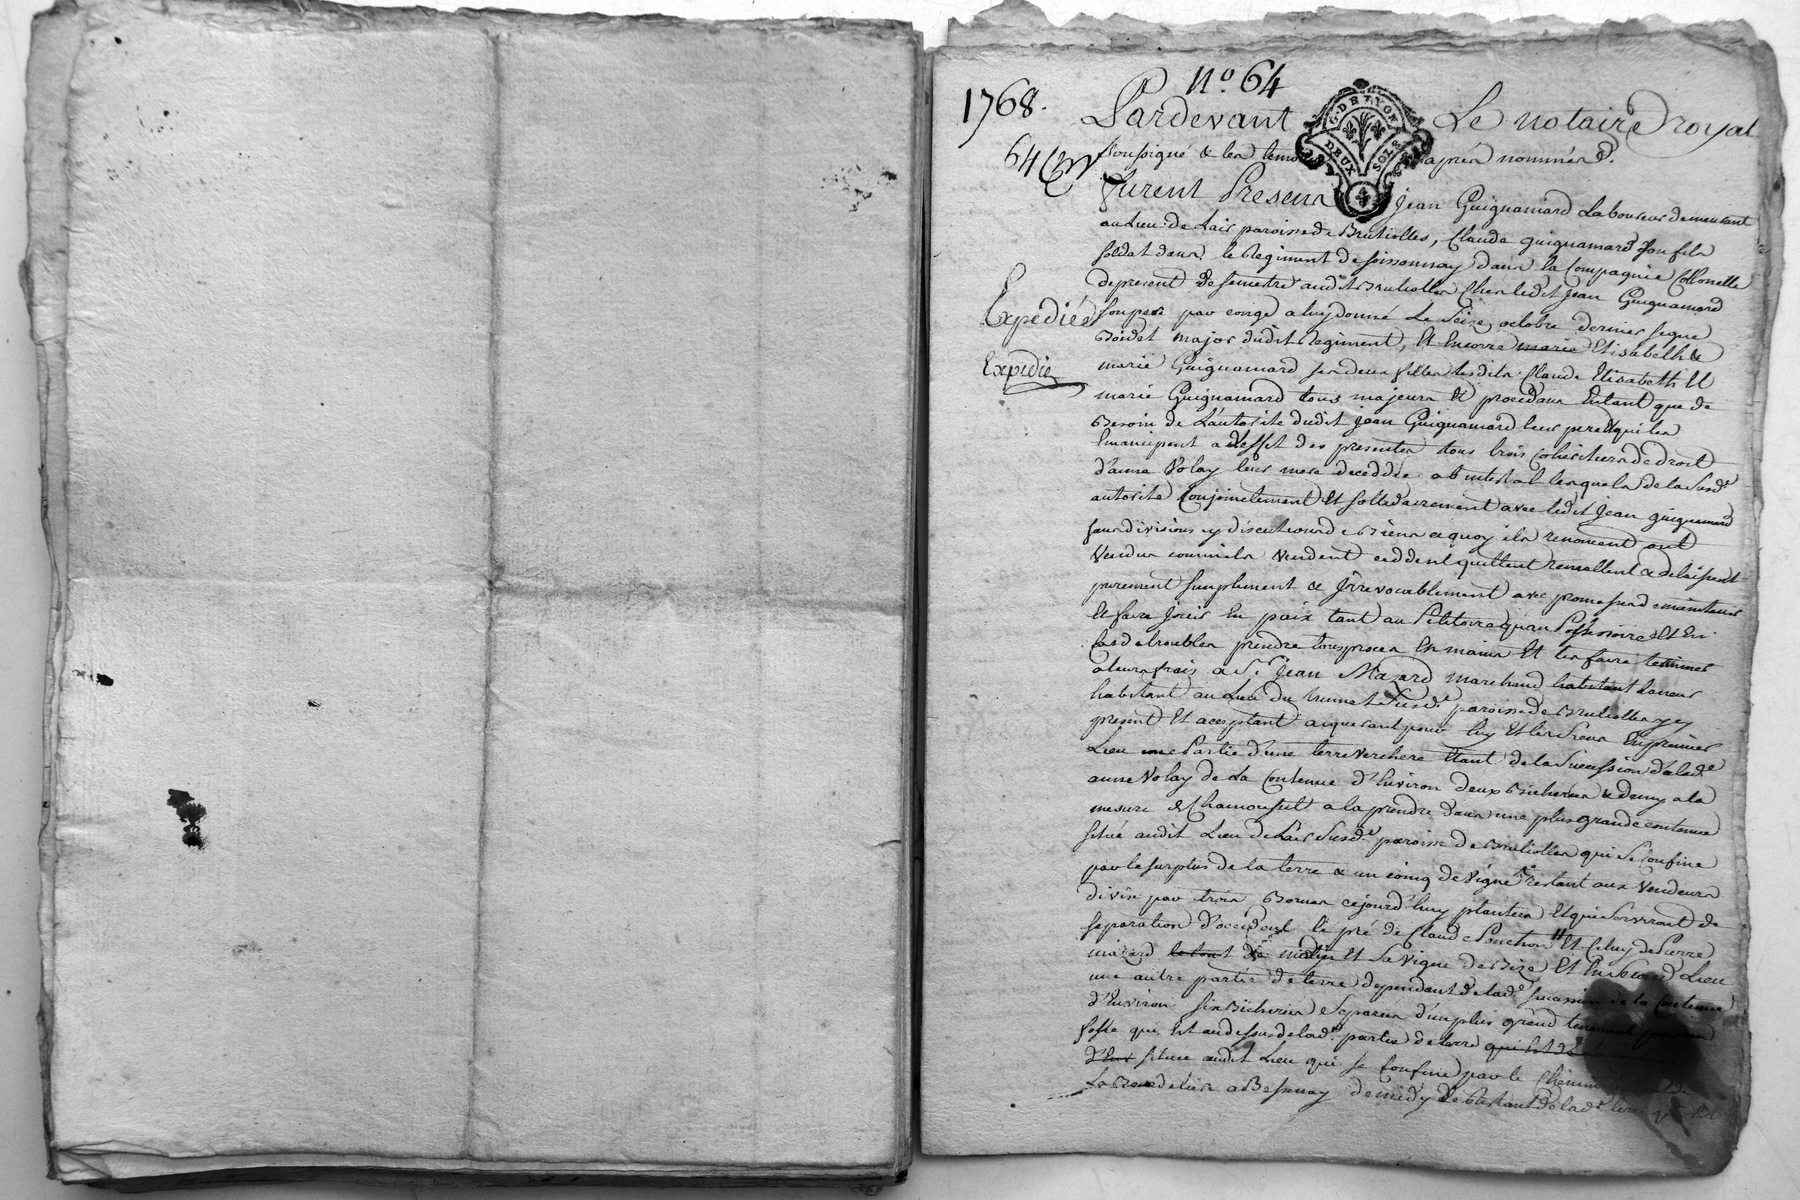 N.o 64
1768.
Pardevant Le notaire royal
64
soussigné & les temoins après nommés
G.D.R LYON
DEUX SOLS
4
furent Presens jean Guignamard Laboureur demeurant
au Lieu de Lair paroisse de Brulioles, Claude guignamard son fils
soldat dans le Regiment de soissonnay dans la Compagnie Collonelle
de present de semestre audit Brulioller Chez ledit jean Guignamard
Expédiée
son pere par congé a luy donné le seize octobre dernier signé
Boidet major dudit Regiment, Et Encorre marie Elisabeth &
Expédié
marie Guignamard ses deux filles lesdits Claude Elisabeth Et
marie Guignamard tous majeurs Et procedans Entant que de
Besoin de L'autorité dudit jean Guignamard leur pere qui les
Emancipent a l'effet des presentes tous trois cohéritiers de droit
d'anne Volay leur mere deceddée ab intestat lesquels de la susd.e
autorité Conjointement Et sollidairement avec ledit jean guignamard
sans division ny discution de Biens a quoy ils renoncent ont
Vendus comme ils vendent ceddent quittent remettent & delaissent
purement simplement & Irrevocablement avec promesse de maintenir
Et faire jouir En paix tant au Petitoire qu'au Possessoire Et En
Cas de troubles prendre tous proces En mains Et les faire terminer
a leurs frais a S.r jean Mazard marchand habitant
habitant au Lieu du susd.e paroisse de Brulioller
present Et acceptant aquerant pour luy Et les siens En premier
Lieu une Partie d'une terre verchere Etant de la Succession d'alad.e
anne Volay de La Contenue d'Environ deux Bicherées & demy a la
mesure de Chamousset a la prendre dans une plus grande contenue
situé audit Lieu de Lair susd.e paroisse de Brulioller qui se Confine
par le surplus de la terre & un coing de vigne restant aux Vendeurs
divisé par trois Bornes cejourd'huy plantées Et qui serviront de
separation d'occident le pré de Claude Ponchon Et Celuy de Pierre
mazard le tout de midy Et La vigne de Bize Et En second Lieu
une autre partie de terre dependant de lad.e succession de la Contenue
d'Environ six Bicherées separées d'un plus grand tenement
fossé qui Est au dessus de lad.e partie de terre qui Est
situe audit Lieu qui se Confine par le Chemin
La Bourdeliere a Bessenay de midy le restant de lad.e